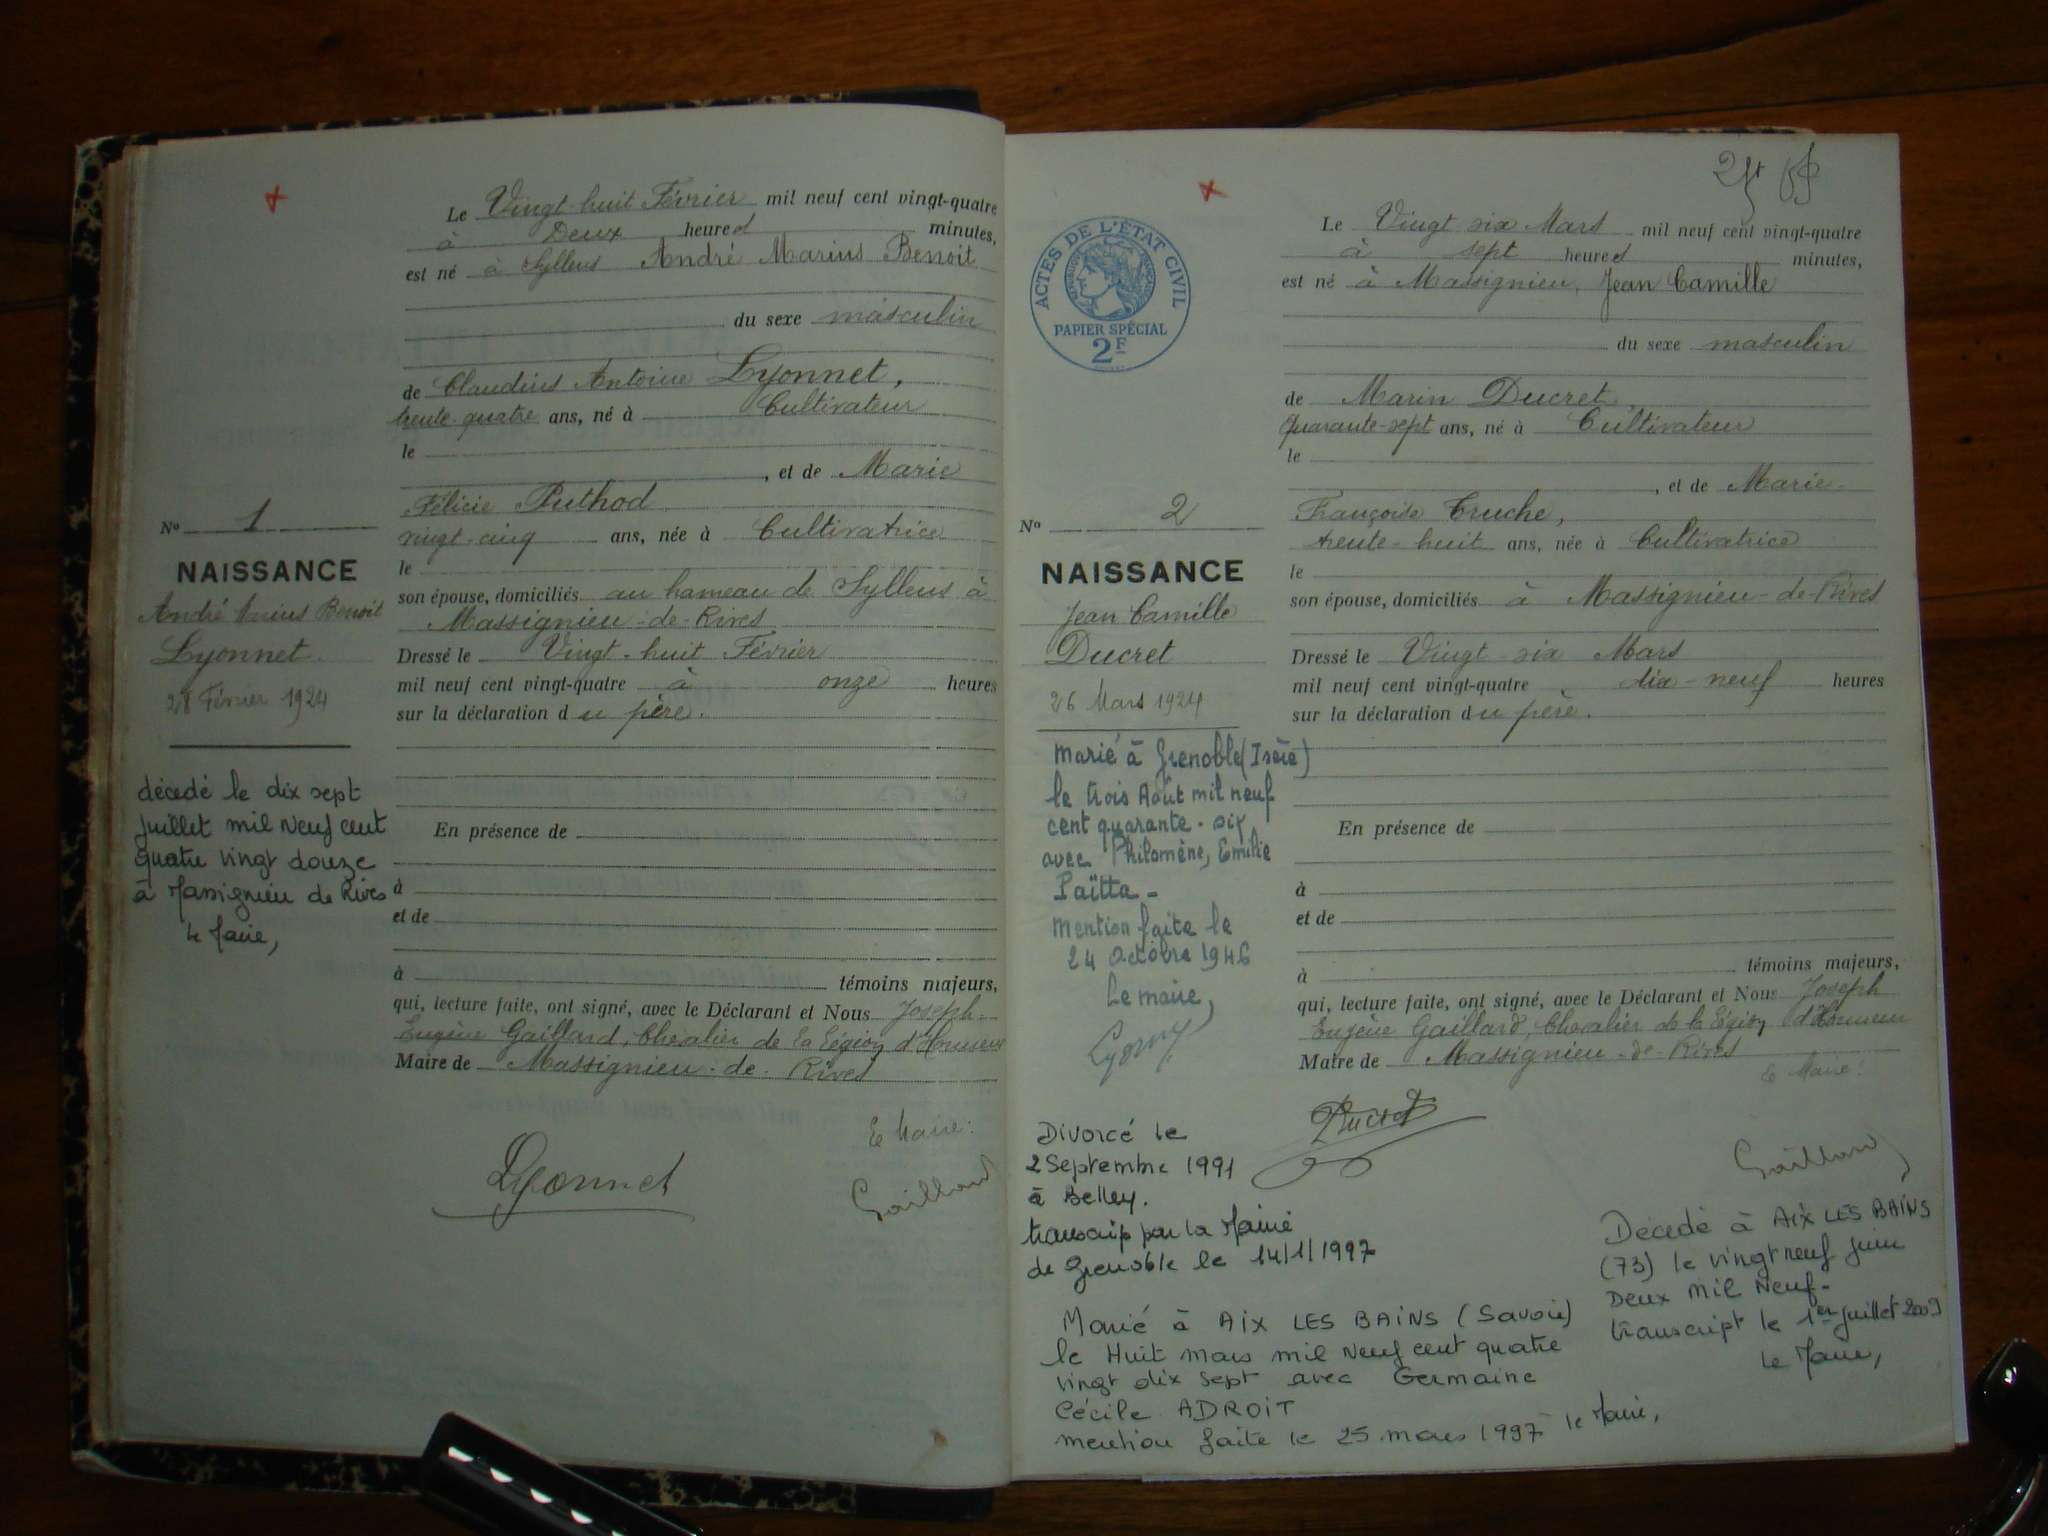 Le Vingt-huit Février mil neuf cent vingt-quatre
à Deux heures minutes,
est né à Sylleus André Marius Benoit
du sexe masculin
de Claudius Antoine Lyonnet,
trente-quatre ans, né à Cultivateur
le
, et de Marie
Félicie Puthod
vingt-cinq ans, née à Cultivatrice
le
son épouse, domiciliés au hameau de Sylleus à
Massignieu-de-Rives
Dressé le Vingt-huit Février
mil neuf cent vingt-quatre à onze heures
sur la déclaration du père.
En présence de
à
et de
à témoins majeurs,
qui, lecture faite, ont signé, avec le Déclarant et Nous Joseph
Eugène Gaillard, Chevalier de la Légion d'Honneur
Maire de Massignieu-de-Rives
Le Maire:
Lyonnet
Gaillard
No 1
NAISSANCE
André Marius Benoit
Lyonnet
28 Février 1924
décédé le dix sept
juillet mil neuf cent
quatre vingt douze
à Massignieu de Rives
le Maire,
ACTES DE L'ÉTAT CIVIL
PAPIER SPÉCIAL
2F
Le Vingt-six Mars mil neuf cent vingt-quatre
à sept heures minutes,
est né à Massignieu, Jean Camille
du sexe masculin
de Marin Ducret,
quarante-sept ans, né à Cultivateur
le
, et de Marie-
Françoise Truche,
trente-huit ans, née à Cultivatrice
le
son épouse, domiciliés à Massignieu-de-Rives
Dressé le Vingt-six Mars
mil neuf cent vingt-quatre dix-neuf heures
sur la déclaration du père.
En présence de
à
et de
à témoins majeurs,
qui, lecture faite, ont signé, avec le Déclarant et Nous Joseph
Eugène Gaillard, Chevalier de la Légion d'Honneur
Maire de Massignieu-de-Rives
Le Maire:
Ducret
Gaillard
No 2
NAISSANCE
Jean Camille
Ducret
26 Mars 1924
Marié à Grenoble (Isère)
le trois Août mil neuf
cent quarante-six
avec Philomène, Emilie
Païtta-
Mention faite le
24 Octobre 1946
Le maire,
Divorcé le
2 Septembre 1991
à Belley.
transcrip par la Mairie
de Grenoble le 14/1/1997
Marié à AIX LES BAINS (Savoie)
le Huit mars mil neuf cent quatre
vingt dix sept avec Germaine
Cécile ADROIT
mention faite le 25 mars 1997 le Maire,
Décédé à AIX LES BAINS
(73) le vingt neuf juin
Deux mil Neuf-
transcript le 1er juillet 2009
le Maire,